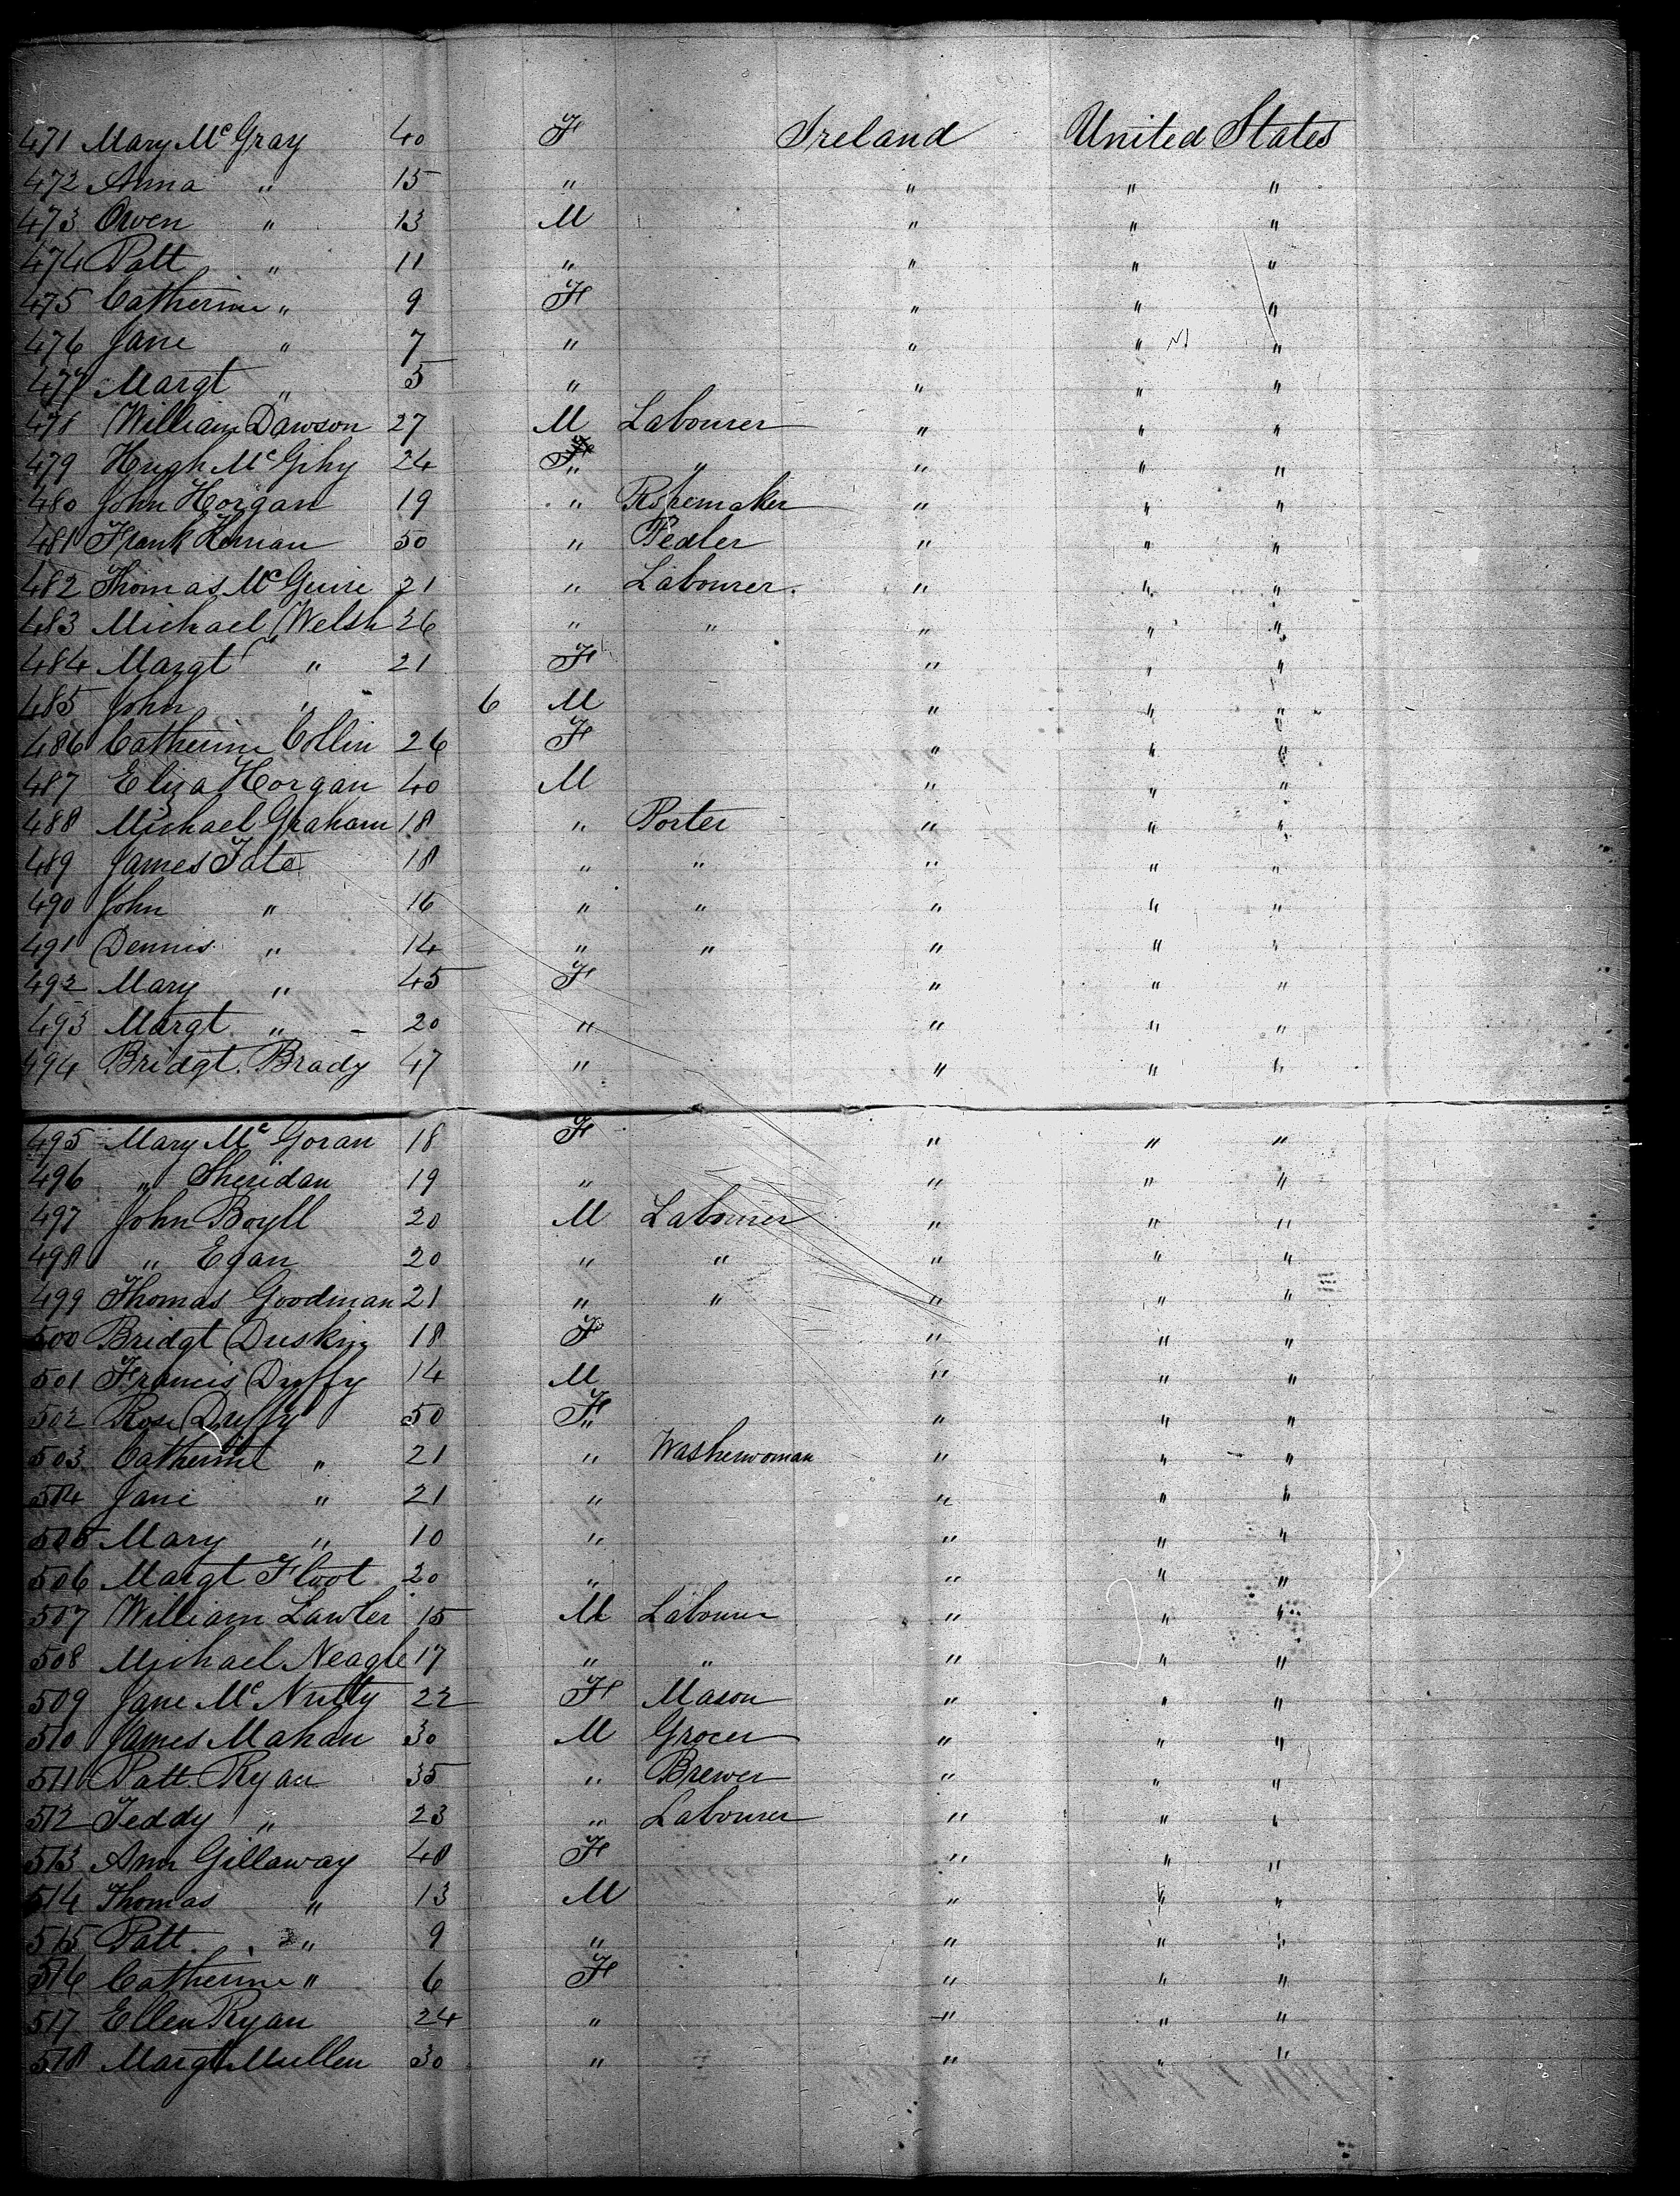 471 Mary McGray 40 F Ireland United States
472 Anna " 15 " " " "
473 Owen " 13 M " " "
474 Patt " 11 " " " "
475 Catherine " 9 F " " "
476 Jane " 7 " " " "
477 Margt " 5 " " " "
478 William Dawson 27 M Labourer " " "
479 Hugh McGihy 24 " " " " "
480 John Horgan 19 " Ropemaker " " "
481 Frank 50 " Pedler " " "
482 Thomas McGuire 21 " Labourer. " " "
483 Michael Welsh 26 " " " " "
484 Margt " 21 F " " "
485 John " 6 M " " "
486 Catherine Collin 26 F " " "
487 Eliza Horgan 40 M " " "
488 Michael Graham 18 " Porter " " "
489 James Tate 18 " " " " "
490 John " 16 " " " " "
491 Dennis " 14 " " " " "
492 Mary " 45 F " " "
493 Margt. " 20 " " " "
494 Bridgt. Brady 47 " " " "
495 Mary McGoran 18 F " " "
496 " Sheridan 19 " " " "
497 John Boyll 20 M Labourer " " "
498 " Egan 20 " " " " "
499 Thomas Goodman 21 " " " " "
500 Bridgt Duskin 18 F " " "
501 Francis Duffy 14 M " " "
502 Rose Duffy 50 F " " "
503 Catherine " 21 " Washerwoman " " "
504 Jane " 21 " " " "
505 Mary " 10 " " " "
506 Margt Floot 20 " " " "
507 William Lawler 15 M Labourer " " "
508 Michael Neagle 17 " " " " "
509 Jane McNulty 22 F Mason " " "
510 James Mahan 30 M Grocer " " "
511 Patt Ryan 35 " Brewer " " "
512 Teddy " 23 " Labourer " " "
513 Ann Gillaway 48 F " " "
514 Thomas " 13 M " " "
515 Patt " 9 " " " "
516 Catherine " 6 F " " "
517 Ellen Ryan 24 " " " "
518 Margt Mullen 30 " " " "